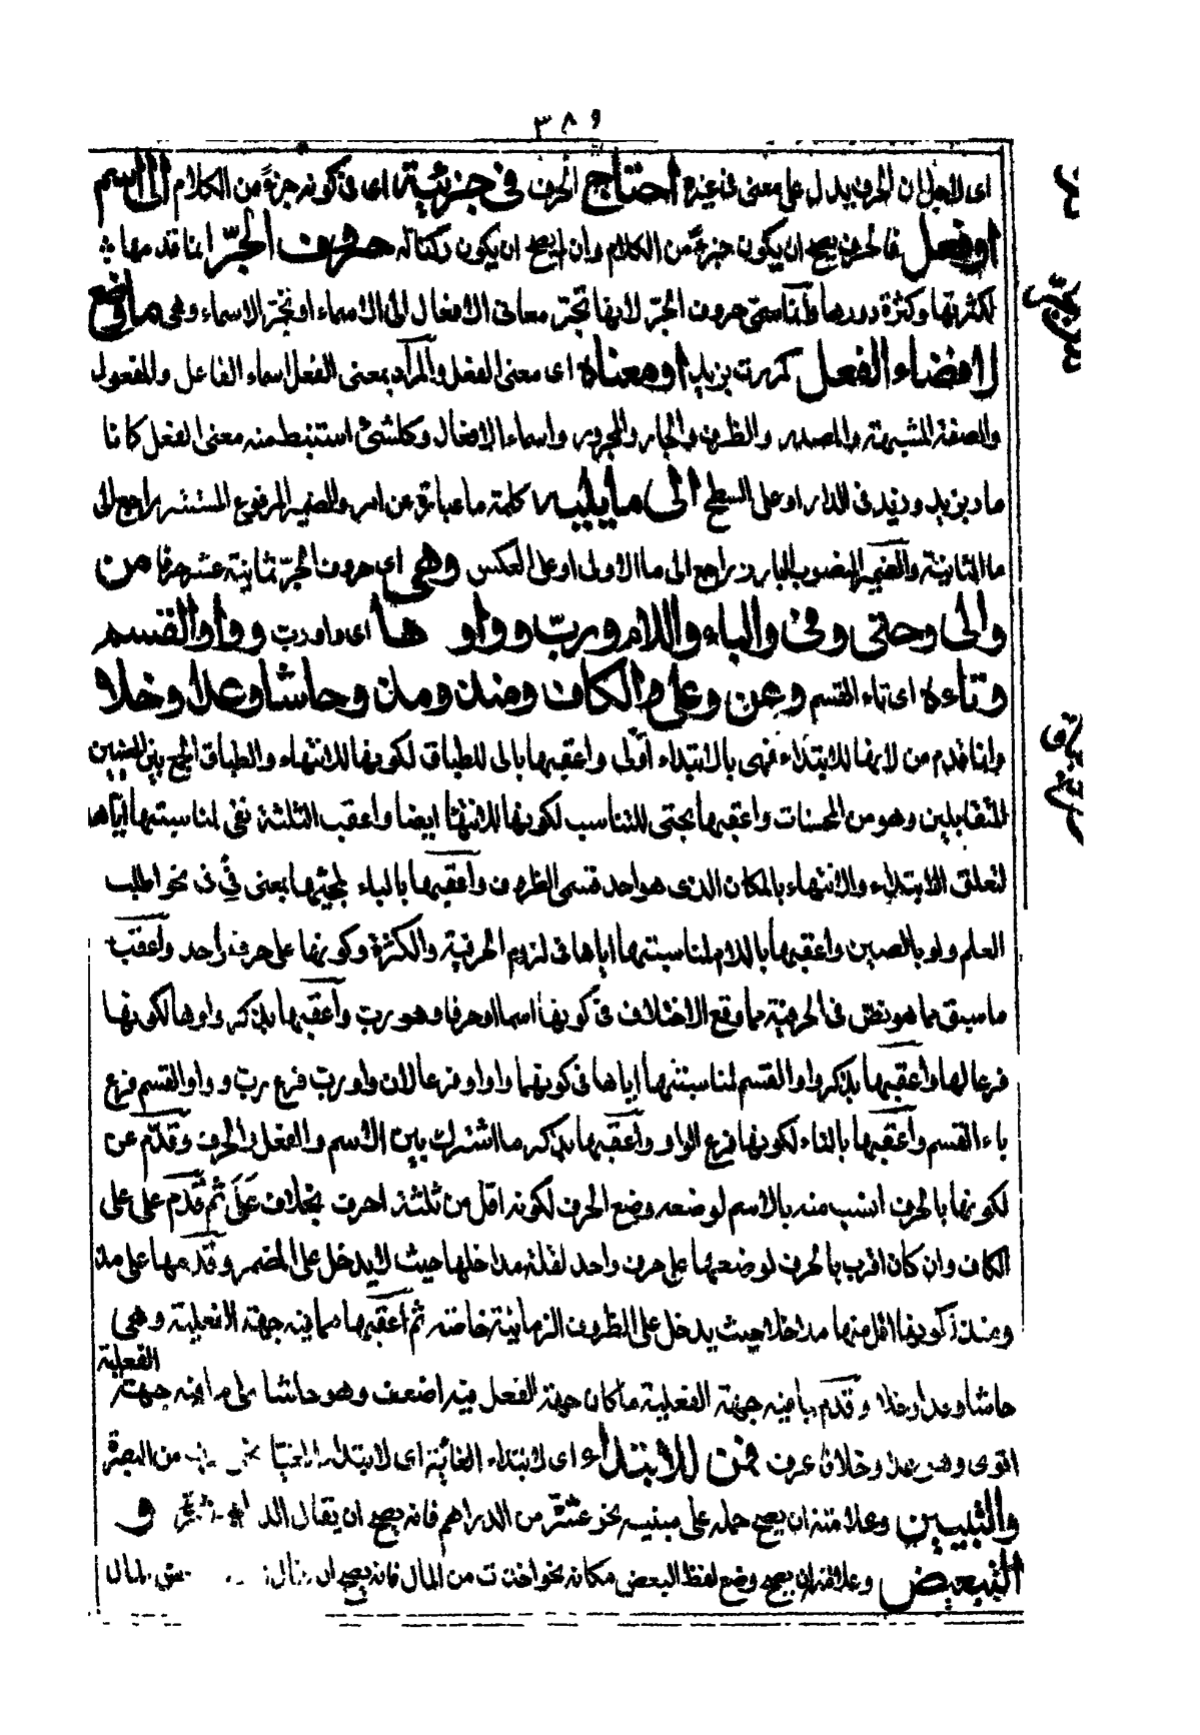 ٣٨٩
اى لاجل ان الحرف يدل على معنى فى غيره احتاج الحرف فى جزئيته اى فى كونه جزءً من الكلام الى اسم
او فعل فالحرف يصح ان يكون جزءً من الكلام وان لم يصح ان يكون ركنا له حروف الجرّ انما قدمها
لكثرتها وكثرة دورها وانما سمّى حروف الجرّ لانها تجرّ معانى الافعال الى الاسماء او تجرّ الاسماء وهى ما وضع
لافضاء الفعل كمررت بزيد او معناه اى معنى الفعل والمراد بمعنى الفعل اسماء الفاعل والمفعول
والصفة المشبهة والمصدر والظرف والجار والمجرور واسماء الافعال وكل شئ استنبط منه معنى الفعل كانا
مار بزيد وزيد فى الدار او على السطح الى ما يليه كلمة ما عبارة عن اسم والضمير المرفوع المستتر راجع الى
ما الثانية والضمير المنصوب البارز راجع الى ما الاولى او على العكس وهى اى حروف الجرّ ثمانية عشر حرفا من
والى وحتى وفى والباء واللام وربّ وواو ها اى واو ربّ وواو القسم
وتاءه اى تاء القسم وعن وعلى والكاف ومنذ ومذ وحاشا وعدا وخلا
وانما قدم من لانها للابتداء فهى بالابتداء اولى واعقبها بالى للطباق لكونها للانتهاء والطباق الجمع بين المعنيين
المتقابلين وهو من المحسنات واعقبها بحتى للتناسب لكونها للانتها ايضا واعقب الثلثة بفى لمناسبتها اياها
لتعلق الابتداء والانتهاء بالمكان الذى هو احد قسمى الظروف واعقبها بالباء لمجيئها بمعنى فى فى نحو اطلب
العلم ولو بالصين واعقبها باللام لمناسبتها اياها فى لزوم الحرفية والكثرة وكونها على حرف واحد واعقب
ما سبق مما هو نصّ فى الحرفية مما وقع الاختلاف فى كونها اسما او حرفا وهو ربّ واعقبها بذكر واوها لكونها
فرعا لها واعقبها بذكر واو القسم لمناسبتها اياها فى كونهما واوا وفرعا لان واو ربّ فرع ربّ وواو القسم فرع
باء القسم واعقبها بالتاء لكونها فرع الواو واعقبها بذكر ما اشترك بين الاسم والفعل والحرف وقدّم عن
لكونها بالحرف انسب منه بالاسم لوضعه وضع الحرف لكونه اقل من ثلثة احرف بخلاف على ثم قدّم على على
الكاف وان كان اقرب بالحرف لوضعها على حرف واحد لقلة مداخلها حيث لا يدخل على المضمر وقدمها على مذ
ومنذ لكونها اقل منها مداخلا حيث يدخل على الظروف الزمانية خاصة ثم اعقبها مما فيه جهة الفعلية وهى
حاشا وعدا وخلا وقدّم مما فيه جهة الفعلية ما كان جهة الفعل فيه اضعف وهو حاشا على ما فيه جهة الفعلية
اقوى وهو عدا وخلا فمن للابتداء اى لابتداء الغاية من البصرة
والتبيين وعلامته ان يصح حمله على مبينه نحو عشر من الدراهم فانه يصح ان يقال و
التبعيض وعلامته ان يصح وضع لفظ البعض مكانه نحو اخذت من المال فانه يصح ان بعض المال